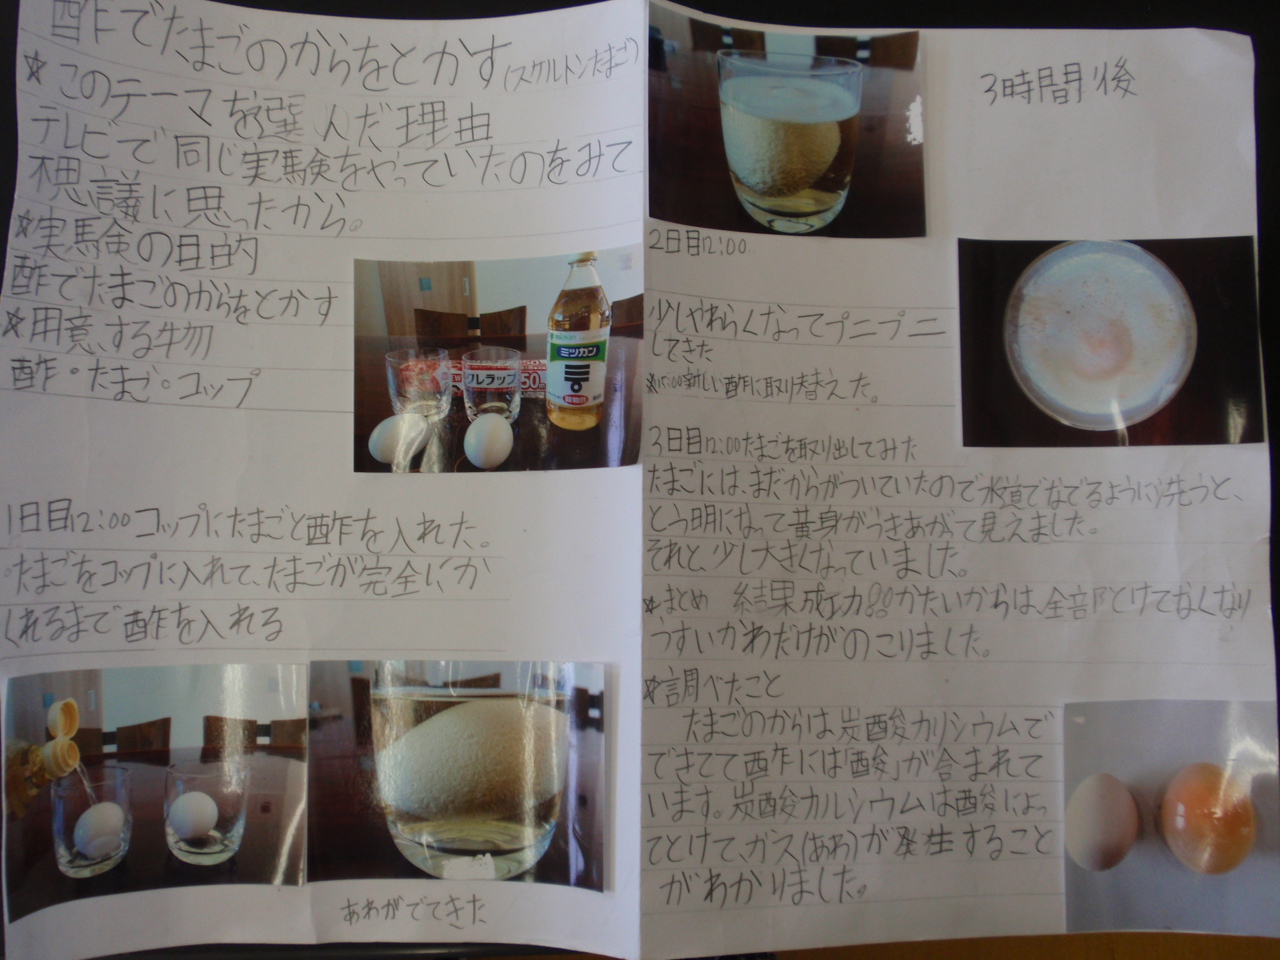 酢でたまごのからをとかす(スケルトンたまご)
☆このテーマを選んだ理由
テレビで同じ実験をやっていたのをみて
不思議に思ったから。
☆実験の目的
酢でたまごのからをとかす
☆用意する物
酢・たまご・コップ
ミツカン
クレラップ
50
1日目12:00コップにたまごと酢を入れた。
・たまごをコップに入れて、たまごが完全にか
くれるまで酢を入れる
あわがでてきた
3時間後
2日目12:00
少しやわらくなってプニプニ
してきた
※15:00新しい酢に取り替えた。
3日目12:00たまごを取り出してみた
たまごには、まだからがついていたので水道でなでるように洗うと、
とう明になって黄身がうきあがって見えました。
それと、少し大きくなっていました。
☆まとめ 結果成功!!かたいからは、全部とけてなくなり
うすいかわだけがのこりました。
☆調べたこと
たまごのからは炭酸カリシウムで
できてて酢には「酸」が含まれて
います。炭酸カルシウムは酸によっ
てとけて、ガス(あわ)が発生すること
がわかりました。